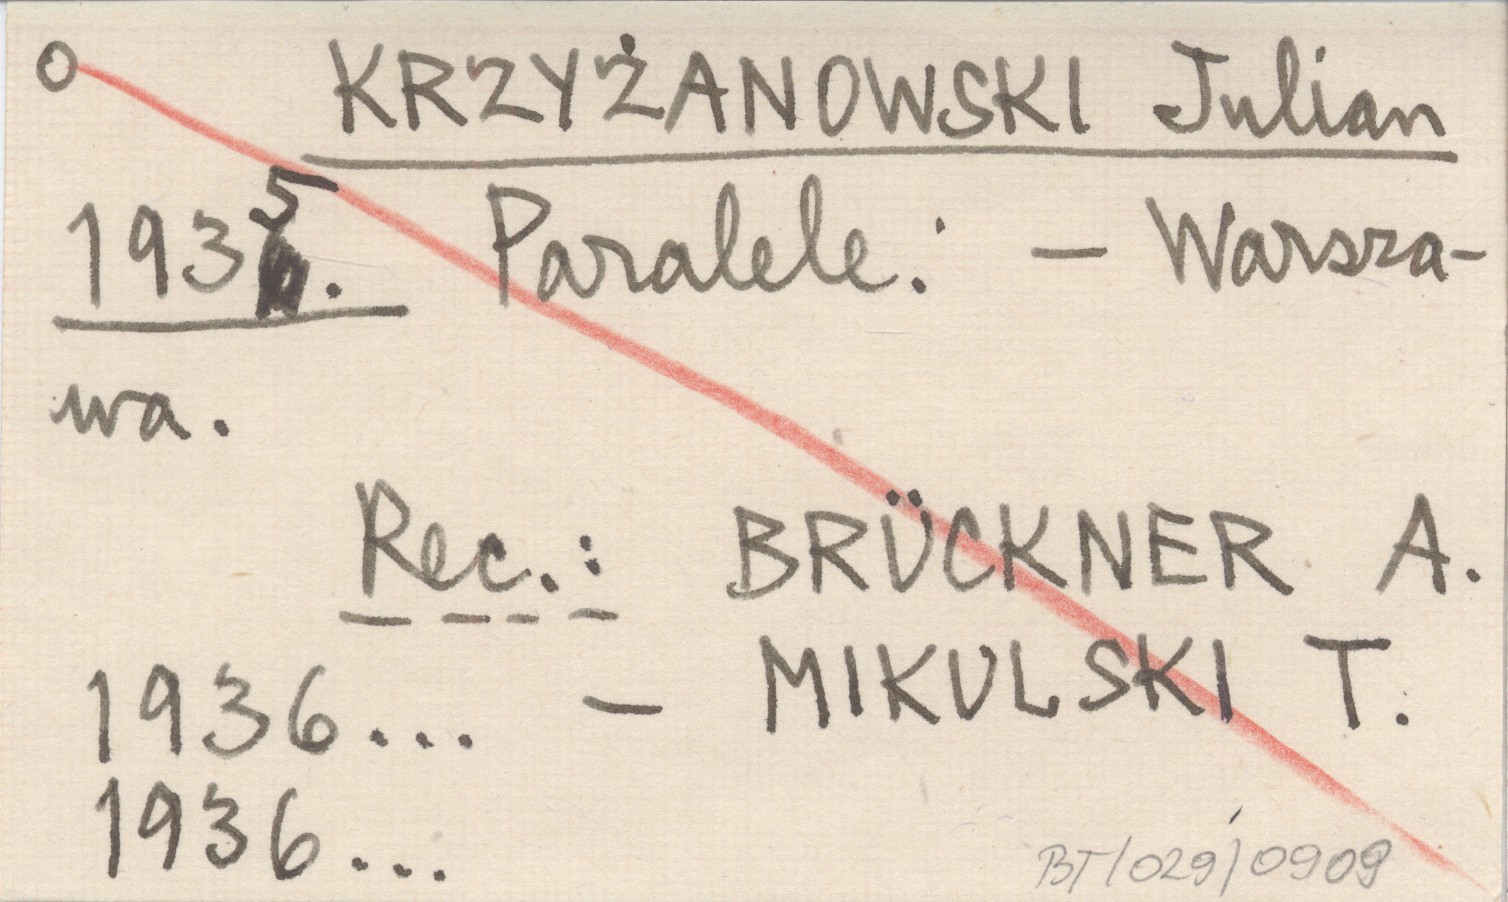 O KRZYŻANOWSKI Julian
1935. Paralele: — Warsza-
wa.
Rec.: BRÜCKNER A.
1936... — MIKULSKI T.
1936...
BT/029/0909